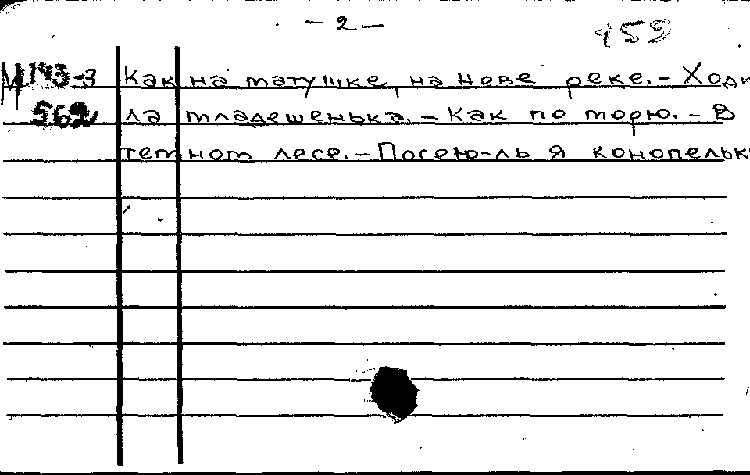 - 2 -
959
М 193-3 Как на матушке, на Неве реке.- Ходи
562 ла младешенька.- Как по морю.- В
темном лесе.- Посею-ль я конопельк